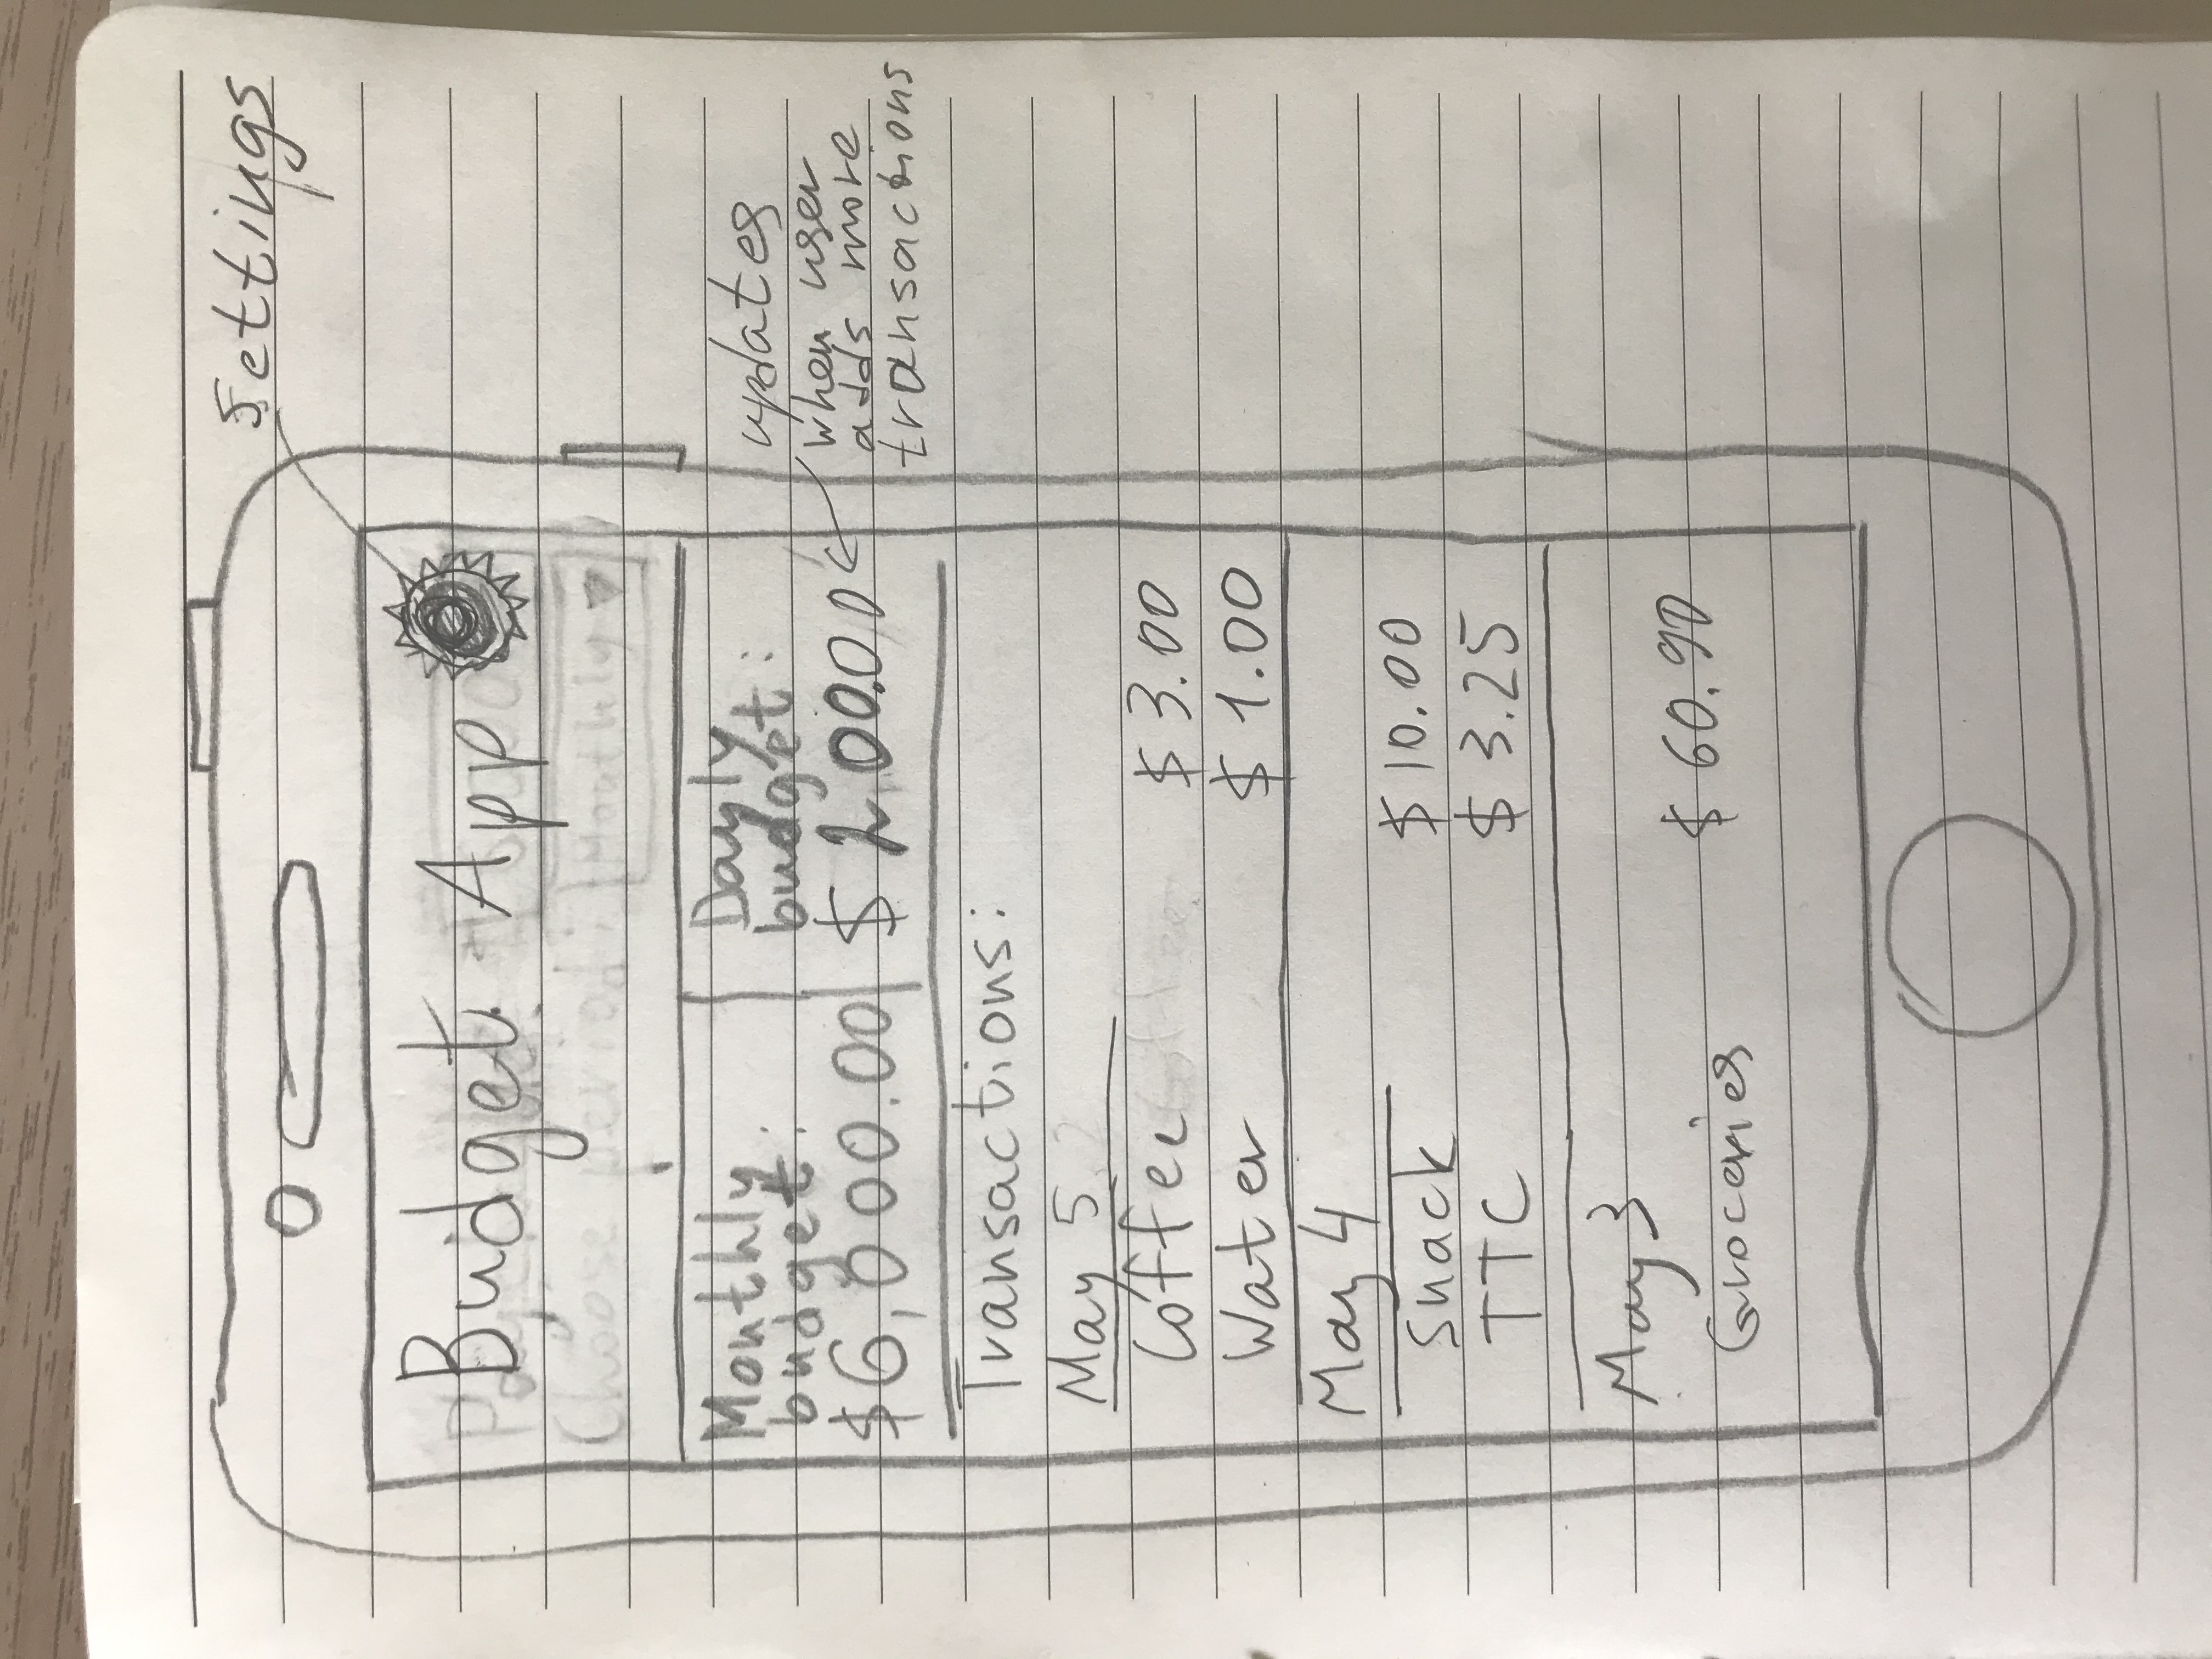 Settings
Budget App
Choose period: Monthly
Monthly
budget:
$6,000.00
Dayly
budget:
$200.00
updates
when user
adds more
transactions
Transactions:
May 5
Coffee $3.00
Water $1.00
May 4
Snack $10.00
TTC $3.25
May 3
Groceries $60.90